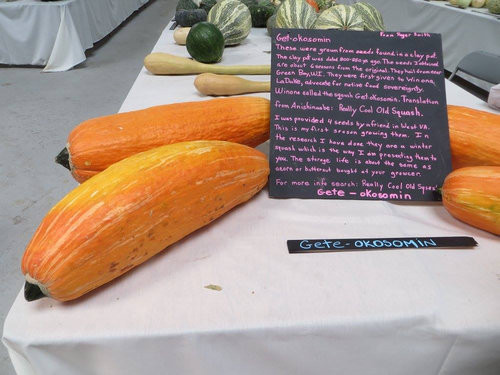 From Roger Smith
Get-okosomin
These were grown from seeds found in a clay pot.
The clay pot was date 800-850 yr ago. The seeds I obtained
are about 6 seasons from the original. They hail from near
Green Bay, WI. They were first given to Winona
LaDuke, advocate for native food sovereignty.
Winona called the squash Gete Okosomin. Translation
from Anishinaabe: Really Cool Old Squash.
I was provided 4 seeds by a friend in West VA.
This is my first season growing them. In
the research I have done they are a winter
squash which is the way I am presenting them to
you. The storage life is about the same as
acorn or butternut squash at your grocer.
For more info search: Really Cool Old Squash
Gete - okosomin
Gete-OKOSOMIN